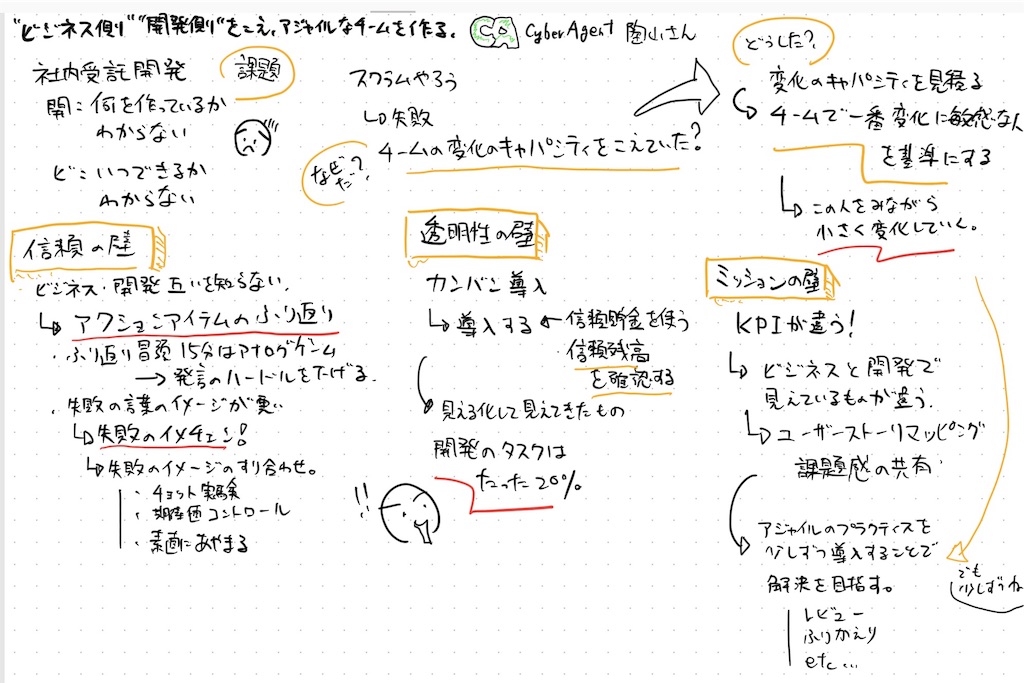 "ビジネス側" "開発側"をこえ、アジャイルなチームを作る。
CA CyberAgent 陶山さん
社内受託開発
課題
開：何を作っているか
わからない
ビ：いつできるか
わからない
スクラムやろう
↳失敗
なぜだ？
チームの変化のキャパシティをこえていた？
どうした？
変化のキャパシティを見極る
チームで一番変化に敏感な人
を基準にする
↳この人をみながら
小さく変化していく。
信頼の壁
ビジネス・開発 互いを知らない。
↳アクションアイテムのふり返り
・ふり返り冒頭15分はアナログゲーム
→発言のハードルを下げる。
・失敗の言葉のイメージが悪い
↳失敗のイメチェン！
↳失敗のイメージのすり合わせ。
・チョット実験
・期待値コントロール
・素直にあやまる
透明性の壁
カンバン導入
↳導入する ← 信頼貯金を使う
・信頼残高
を確認する
見える化して見えてきたもの
開発のタスクは
たった20%
!!
ミッションの壁
KPIが違う！
↳ビジネスと開発で
見えているものが違う。
↳ユーザーストーリマッピング
課題感の共有
アジャイルのプラクティスを
少しずつ導入することで
解決を目指す。
レビュー
ふりかえり
etc...
でも
少しずつね